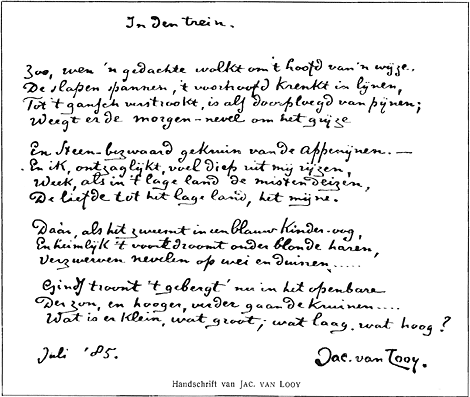 In den trein.
Zoo, wen 'n gedachte wolkt om 't hoofd van 'n wijze.
De slapen spannen, 't voorhoofd krenkt in lijnen,
Tot 't gansch verstrookt, is als doorploegd van pijnen;
Weegt er de morgen-nevel om het grijze
En Steen-bezwaard gekruin van de Appenijnen. —
En ik, ontzaglijkt, voel diep uit mij rijzen,
Week, als in 't lage land de misten deizen,
De liefde tot het lage land, het mijne.
Daar, als het zweemt in een blauw Kinder-oog,
En heimlijk 't voort droomt onder blonde haren,
Verzwerven nevelen op wei en duinen.....
Ginds troont 't gebergt' nu in het openbare
Der zon, en hooger, verder gaan de kruinen....
Wat is er klein, wat groot; wat laag, wat hoog?
Juli '85.
Jac. van Looy.
Handschrift van JAC. VAN LOOY